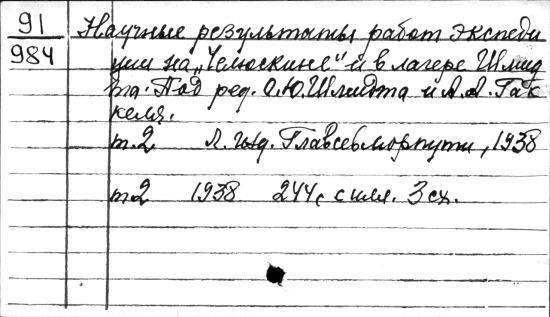 91
984
Научные результаты работ экспеди
ции на „Челюскине" и в лагере Шмид
та. Под ред. О.Ю. Шмидта и Я.Я. Гак
келя.
т.2 Л. изд. Главсевморпути, 1938
т2 1938 244с с илл. 3 сх.